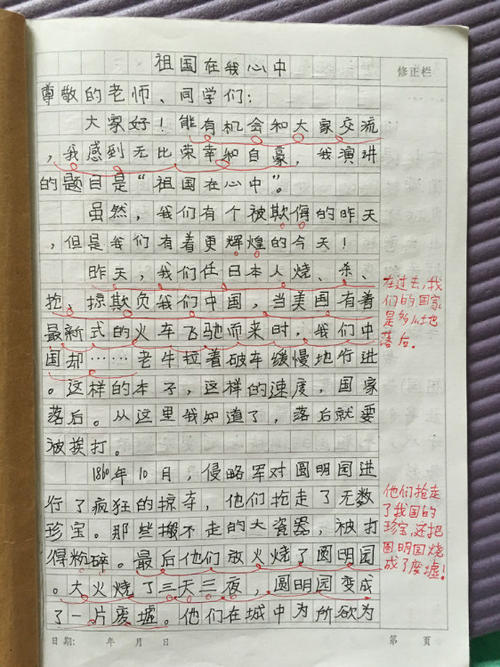 祖国在我心中
修正栏
尊敬的老师、同学们:
大家好!能有机会和大家交流
,我感到无比荣幸和自豪,我演讲
的题目是“祖国在心中”。
虽然,我们有个被欺侮的昨天
,但是我们有着更辉煌的今天!
昨天,我们任日本人烧、杀、
抢、掠欺负我们中国,当美国有着
最新式的火车飞驰而来时,我们中
国却……老牛拉着破车缓慢地行进
。这样的本子,这样的速度,国家
落后。从这里我知道了,落后就要
被挨打。
在过去,我
们的国家
是多么地
落后。
1860年10月,侵略军对圆明园进
行了疯狂的掠夺,他们抢走了无数
珍宝。那些搬不走的大瓷器,被打
得粉碎。最后他们放火烧了圆明园
。大火烧了三天三夜,圆明园变成
了一片废墟。他们在城中为所欲为
他们抢走
了我国的
珍宝,还把
圆明园烧
成了废墟!
日期: 年 月 日
第 页